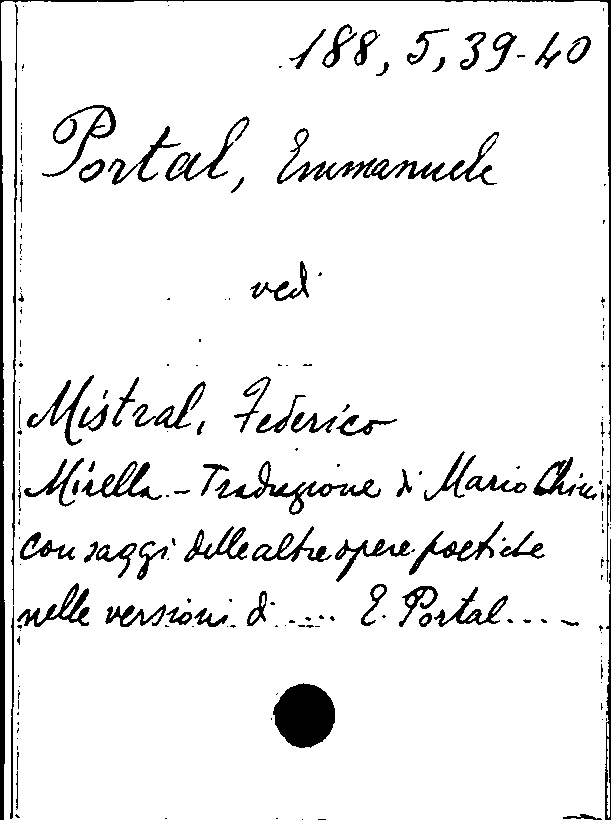 188, 5, 39-40
Portal, Emmanuele
vedi
Mistral, Federico
Mirella - Traduzione di Mario Chini
con saggi delle altre opere poetiche
nelle versioni di .... E. Portal....